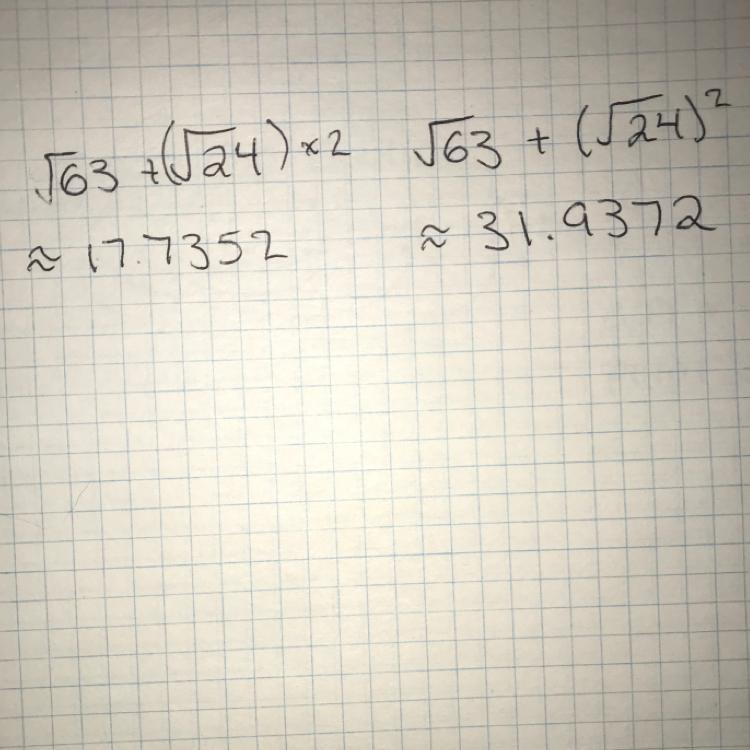 √63 +(√24)×2
≈ 17.7352
√63 + (√24)²
≈ 31.9372